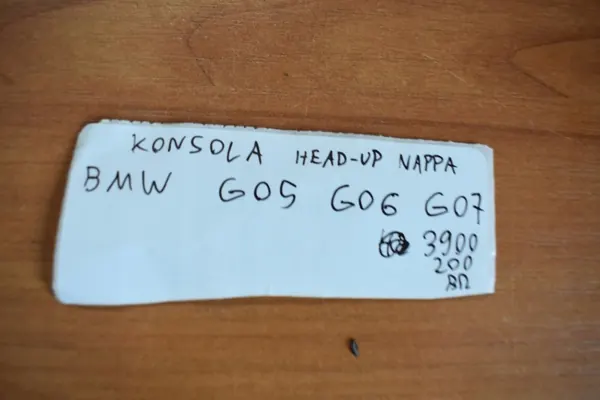 KONSOLA HEAD-UP NAPPA
BMW G05 G06 G07
3900
200